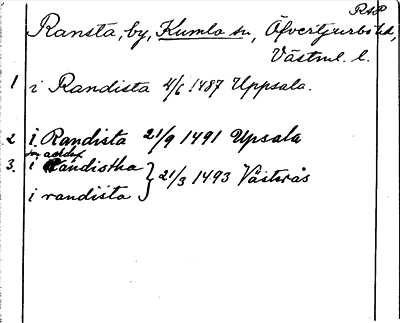 RAP
Ransta, by, Kumla sn, Öfvertjurbo hd,
Västml. l.
1 i Randista 4/6 1487 Uppsala.
2 i Randista 21/9 1491 Upsala
3. i Randistha } 21/3 1493 Västerås
i randista